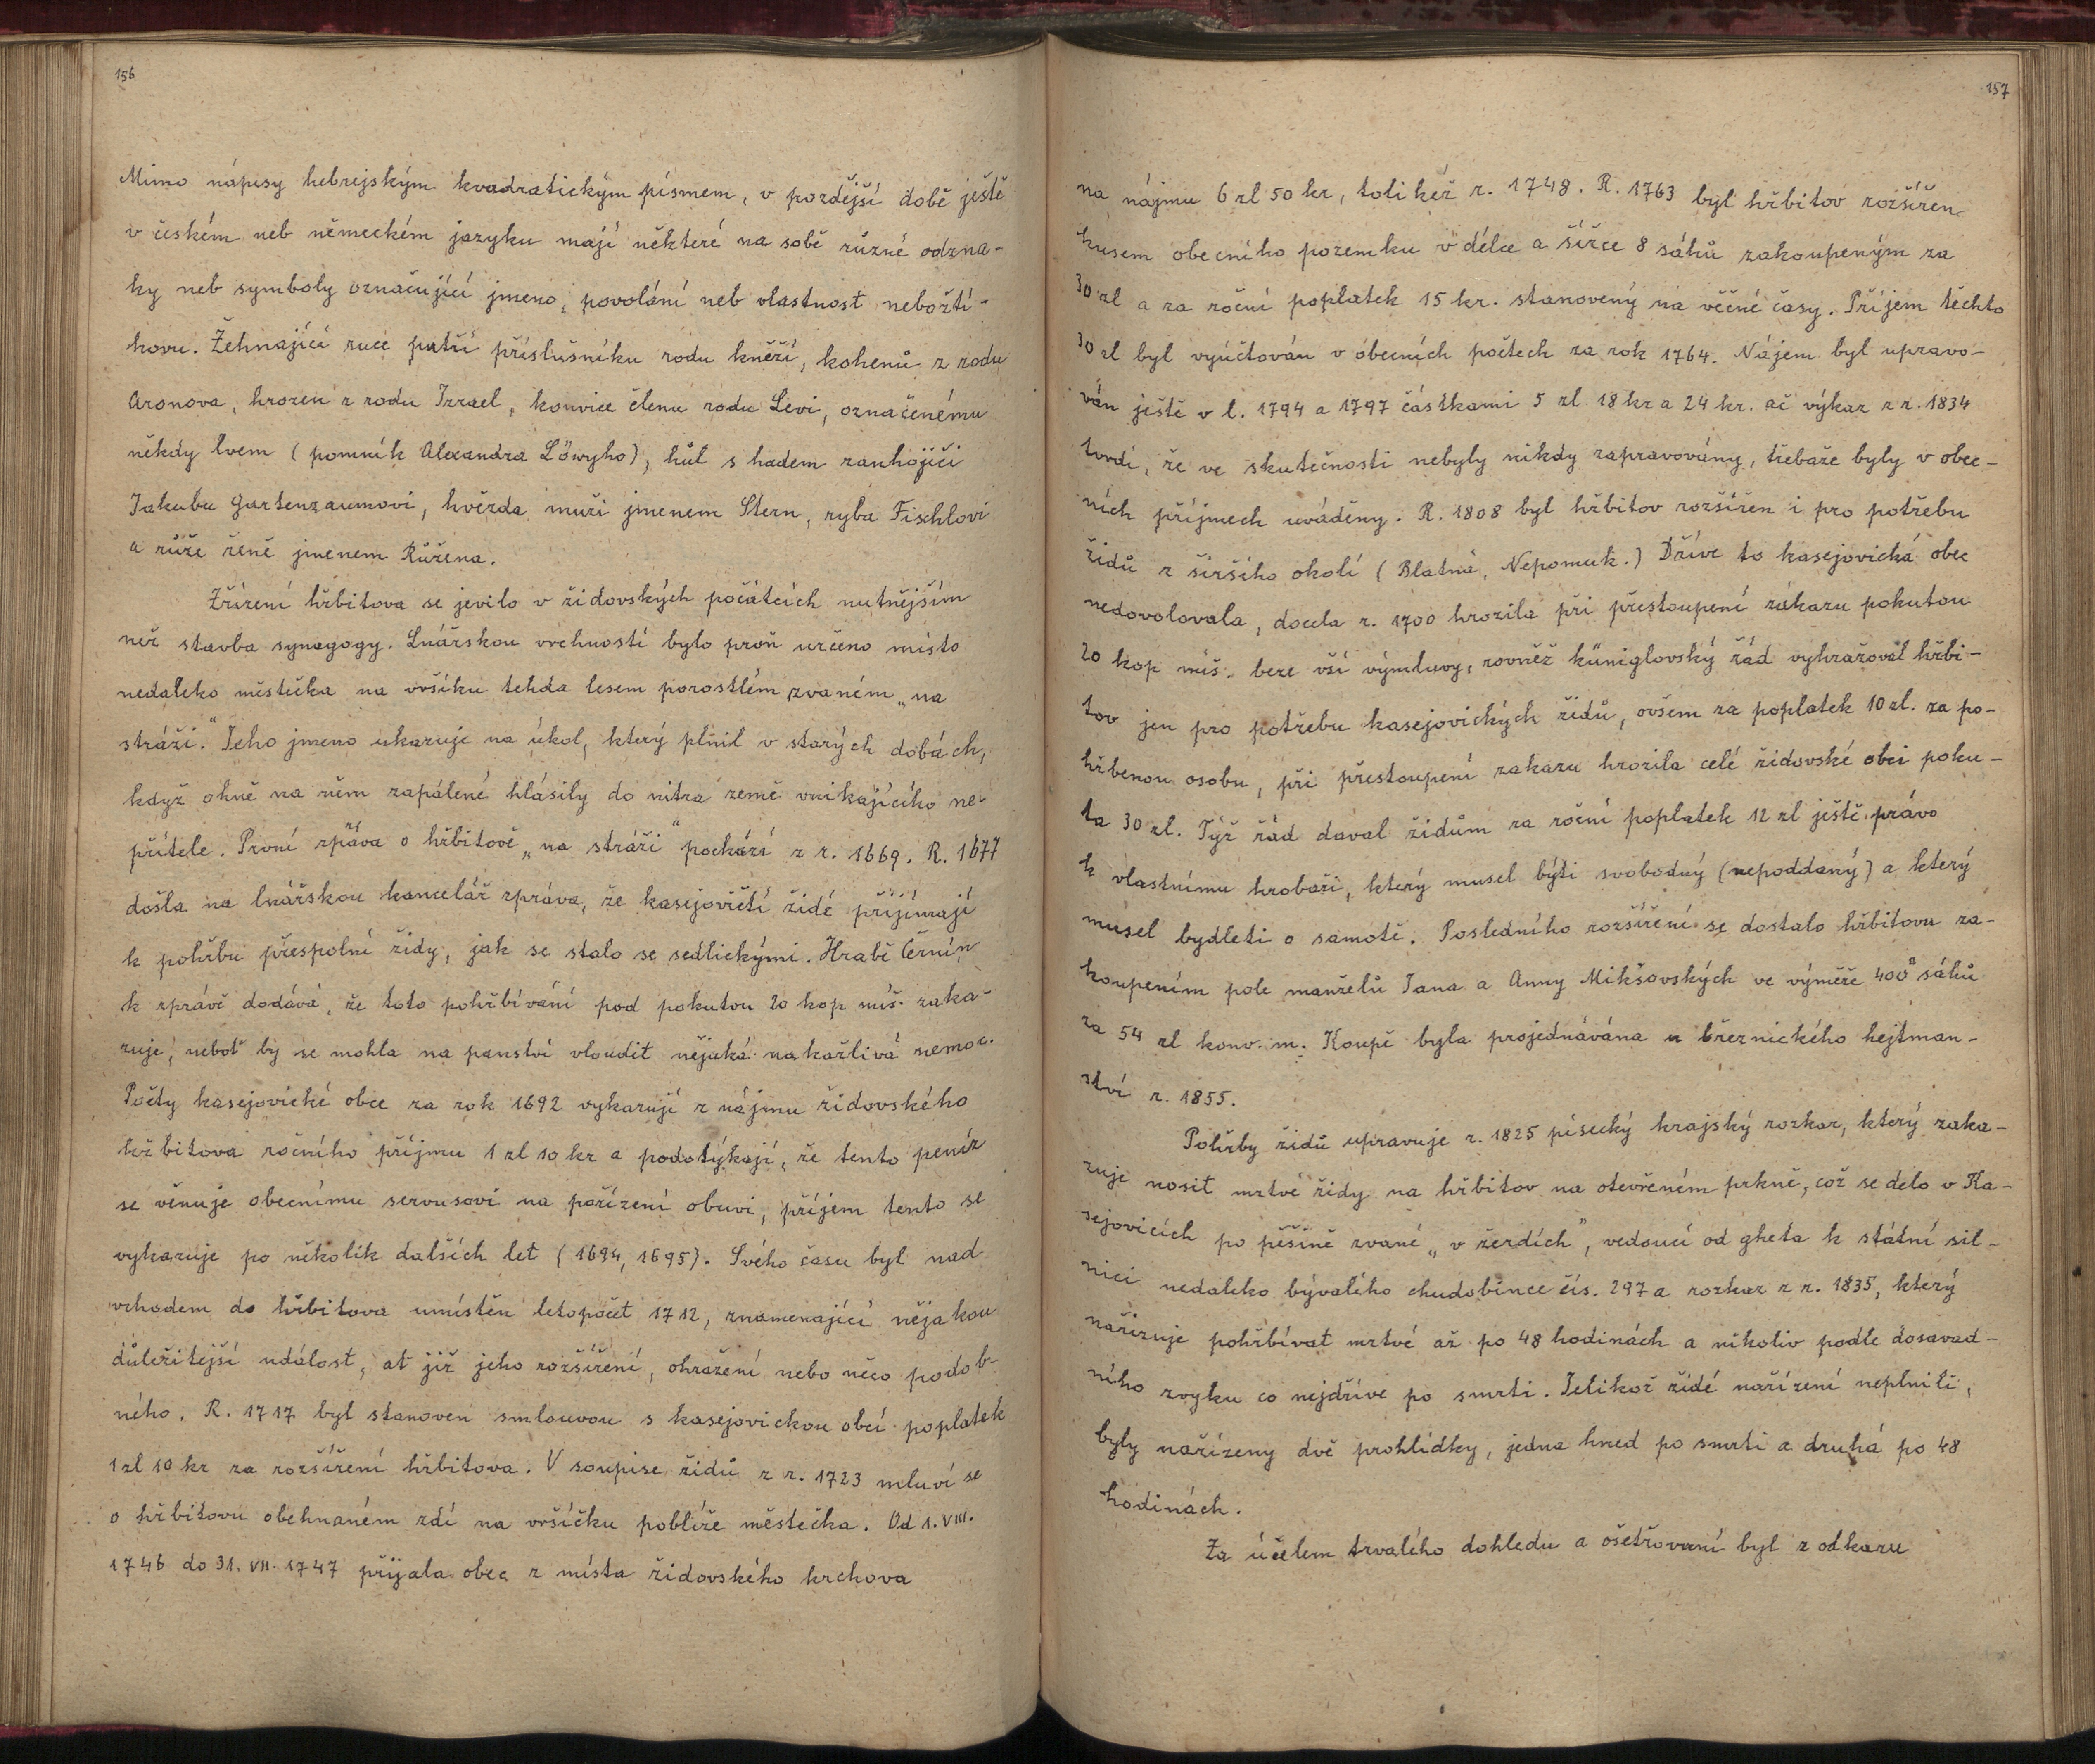 156
Mimo nápisy hebrejským kvadratickým písmem, v pozdější době ještě
v českém neb německém jazyku mají některé na sobě různé odzna-
ky neb symboly označující jmeno, povolání neb vlastnost neboští-
kovu. Žehnající ruce patří příslušníku rodu kněží, kohenů z rodu
Aronova, hrozen z rodu Izrael, konvice členu rodu Levi, označenému
někdy lvem (pomník Alexandra Löwyho), hůl s hadem ranhojiči
Jakubu Gartenzaumovi, hvězda muži jmenem Stern, ryba Fischlovi
a růže ženě jmenem Růžena.
Zřízení hřbitova se jevilo v židovských počátcích nutnějším
než stavba synagogy. Lnářskou vrchností bylo proň určeno místo
nedaleko městečka na vršíku tehda lesem porostlém zvaném „na
stráži." Jeho jmeno ukazuje na úkol, který plnil v starých dobách,
když ohně na něm zapálené hlásily do nitra země vnikajícího ne-
přítele. První zpráva o hřbitově „na stráži" pochází z r. 1669. R. 1677
došla na lnářskou kancelář zpráva, že kasejovičtí židé přijímají
k pohřbu přespolní židy, jak se stalo se sedlickými. Hrabě Černín
k zprávě dodává, že toto pohřbívání pod pokutou 20 kop míš. zaka-
zuje, neboť by se mohla na panství vloudit nějaká nakažlivá nemoc.
Počty kasejovické obce za rok 1692 vykazují z nájmu židovského
hřbitova ročního příjmu 1 zl 10 kr a podotýkají, že tento peníz
se věnuje obecnímu servusovi na pořízení obuvi, příjem tento se
vykazuje po několik dalších let (1694, 1695). Svého času byl nad
vchodem do hřbitova umístěn letopočet 1712, znamenající nějakou
důležitejší událost, ať již jeho rozšíření, ohražení nebo něco podob-
ného. R. 1717 byl stanoven smlouvou s kasejovickou obcí poplatek
1 zl 10 kr za rozšíření hřbitova. V soupise židů z r. 1723 mluví se
o hřbitovu obehnaném zdí na vršíčku poblíže městečka. Od 1. VIII.
1746 do 31. VII. 1747 přijala obec z místa židovského krchova
157
na nájmu 6 zl 50 kr, tolikéž r. 1748. R. 1763 byl hřbitov rozšířen
kusem obecního pozemku v délce a šířce 8 sáhů zakoupeným za
30 zl a za roční poplatek 15 kr. stanovený na věčné časy. Příjem těchto
30 zl byl vyúčtován v obecních počtech za rok 1764. Nájem byl upravo-
ván ještě v l. 1794 a 1797 částkami 5 zl 18 kr a 24 kr. ač výkaz z r. 1834
tvrdí, že ve skutečnosti nebyly nikdy zapravovány, třebaže byly v obec-
ních příjmech uváděny. R. 1808 byl hřbitov rozšířen i pro potřebu
židů z širšího okolí (Blatná, Nepomuk.) Dříve to kasejovická obec
nedovolovala, docela r. 1700 hrozila při přestoupení zákazu pokutou
20 kop míš. beze vší výmluvy, rovněž küniglovský řád vyhražoval hřbi-
tov jen pro potřebu kasejovických židů, ovšem za poplatek 10 zl. za po-
hřbenou osobu, při přestoupení zakazu hrozila celé židovské obci poku-
ta 30 zl. Týž řád daval židům za roční poplatek 12 zl ještě právo
k vlastnímu hrobaři, který musel býti svobodný (nepoddaný) a který
musel bydleti o samotě. Posledního rozšíření se dostalo hřbitovu za-
koupením pole manželů Jana a Anny Mikšovských ve výměře 400° sáhů
za 54 zl konv. m. Koupě byla projednávána u březnického hejtman-
ství r. 1855.
Pohřby židů upravuje r. 1825 písecký krajský rozkaz, který zaka-
zuje nosit mrtvé židy na hřbitov na otevřeném prkně, což se delo v Ka-
sejovicích po pěšině zvané „v žerdích", vedoucí od gheta k státní sil-
nici nedaleko bývalého chudobince čís. 297 a rozkaz z r. 1835, který
nařizuje pohřbívat mrtvé až po 48 hodinách a nikoliv podle dosavad-
ního zvyku co nejdříve po smrti. Jelikož židé nařízení neplnili,
byly nařízeny dvě prohlídky, jedna hned po smrti a druhá po 48
hodinách.
Za účelem trvalého dohledu a ošetřovaní byl z odkazu